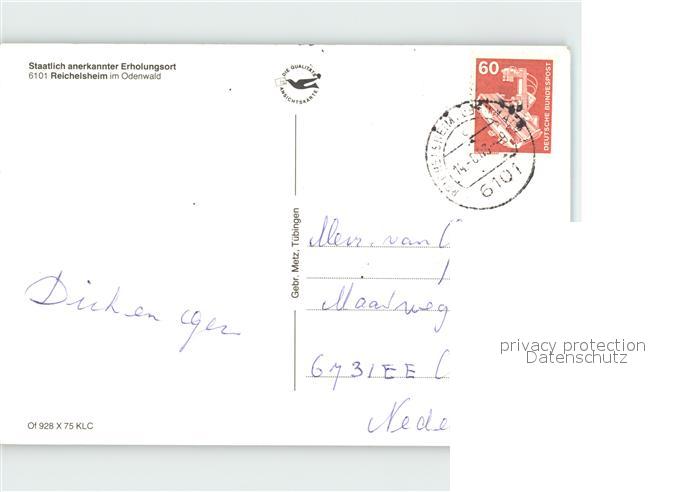 Staatlich anerkannter Erholungsort
6101 Reichelsheim im Odenwald
DIE QUALITÄTS
ANSICHTSKARTE
60
DEUTSCHE BUNDESPOST
6101
Gebr. Metz, Tübingen
Mevr. van
Maatweg
6731EE
Nede
Of 928 X 75 KLC
privacy protection
Datenschutz